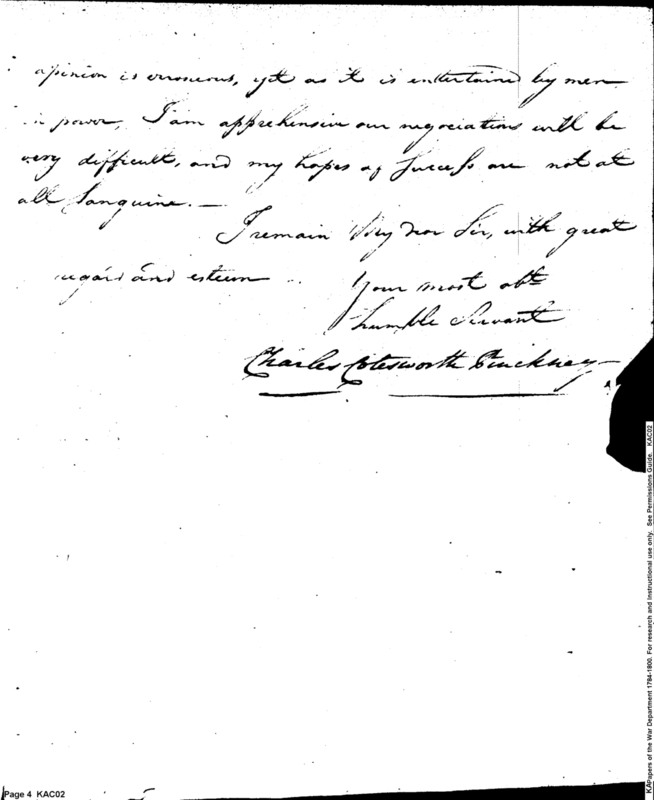 opinion is erroneous, yet as it is entertained by men
in power, I am apprehensive our negociations will be
very difficult, and my hopes of success are not at
all sanguine. —
I remain My dear Sir, with great
regard and esteem
Your most obt
humble Servant
Charles Cotesworth Pinckney
Page 4 KAC02
KAPapers of the War Department 1784-1800. For research and instructional use only. See Permissions Guide. KAC02